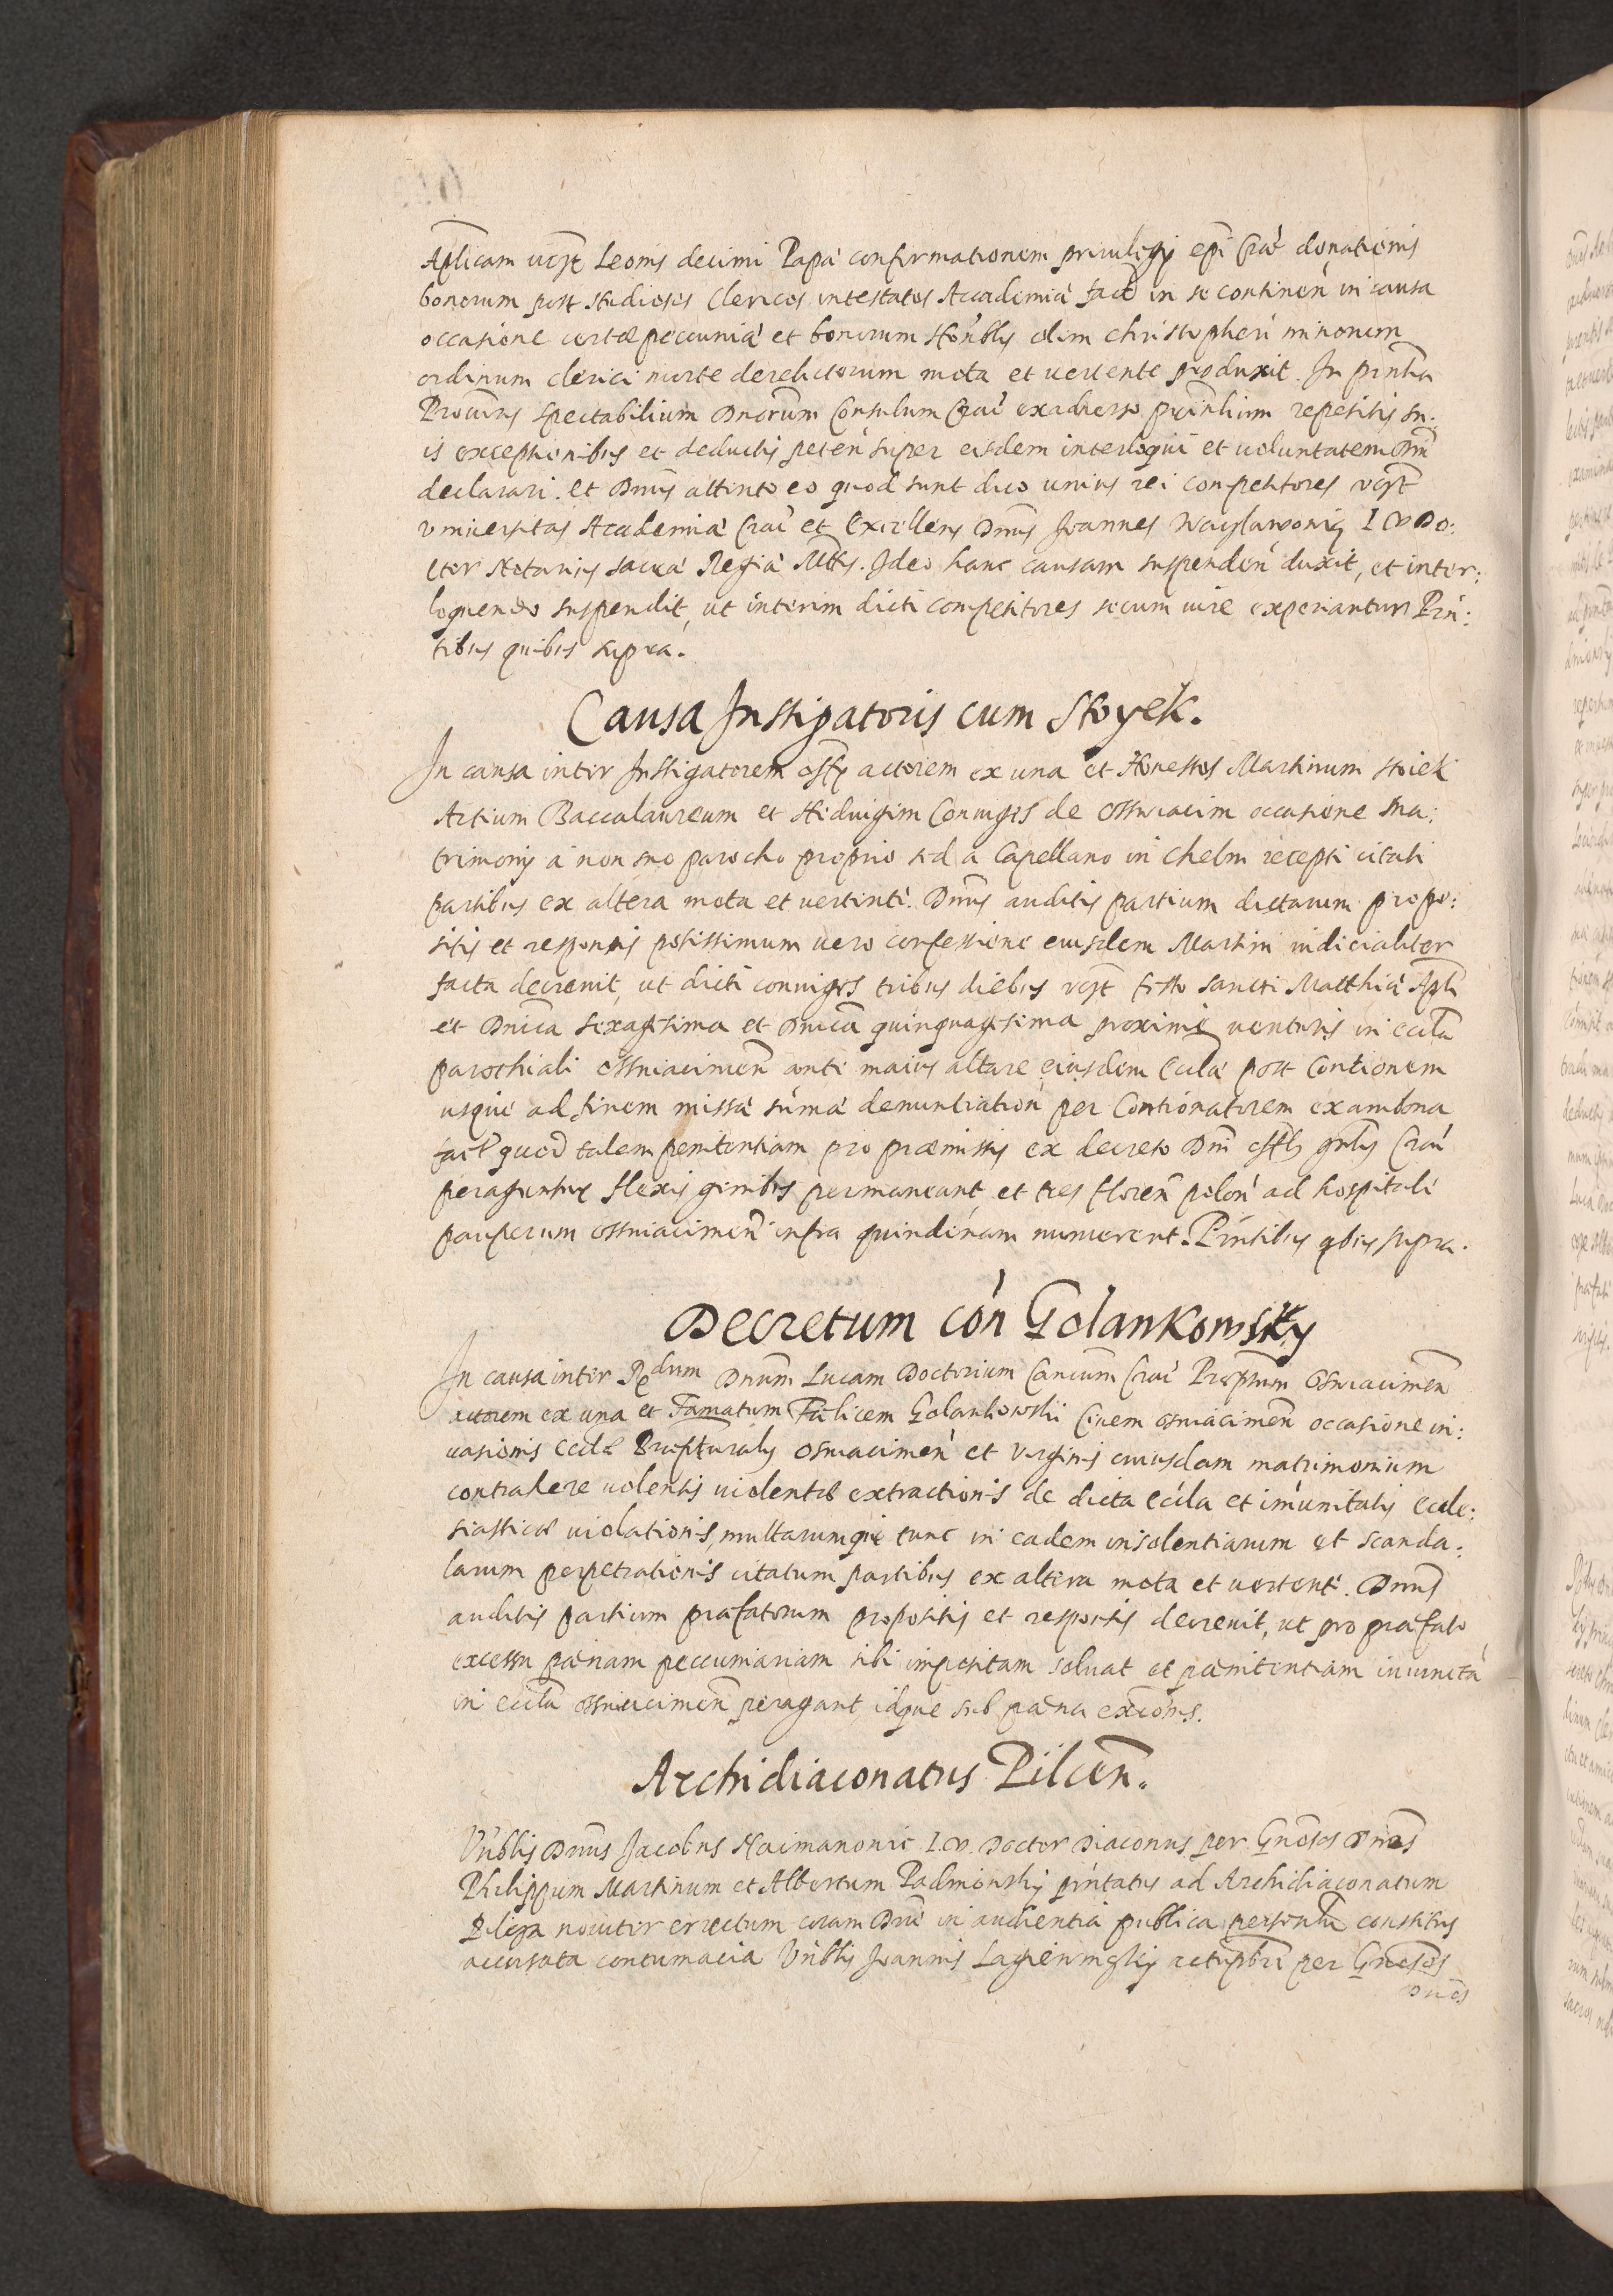 Aplicam vcȝt Leonis decimi Papa confirmationem priuilegij epi Cra donationis
bonorum post studiosos Clericos intestatos Accademia fact in se continen in causa
occasione certæ peccunia et bonorum Honblis olim Christopheri minorum
ordinum clerici morte derelictorum mota et vertente produxit. In pntia
Procuris spectabilium Dnorum Consulum Cra ex aduerso pntium repetitis su:
is exceptionibus et deductis peten super eisdem interloqui et voluntatem Dni
declarari. et Dnus attento eo quod sunt duo unius rei competitores vcȝt
vniuersitas Academia Cra et Excellens Dnus Joannes I V Do:
ctor Notarius sacra Regia Mttis. Ideo hanc causam suspenden duxit, et inter:
loquendo suspendit, ut interim dicti competitores secum iure experiantur Prn:
tibus quibus supra.
Causa Instigatoris cum Stoyek.
In causa inter Instigatorem offy actorem ex una et Honestos Martinum stoiek
Artium Baccalaureum et Hedvigim Coniuges de Osswiacim occasione ma:
trimonij a non suo parocho proprio sed a Capellano in Chelm recepti citati
partibus ex altera mota et vertente. Dnus auditis partium dictarum propo:
sitis et responsis potissimum vero confessione eiusdem Martini iudicialiter
facta decreuit, ut dicti coniuges tribus diebus vcȝt festo Sancti Matthia Apli
et Dnica sexagesima et Dnica quinquagesima proxime venturis in eccla
parochiali Osswiacimen ante maius altare eiusdem Eccla post Contionem
usque ad finem missa suma denuntiation per Contionatorem ex ambona
fact quod talem penitentiam pro præmissis ex decreto Dni offlis gnlis Cra
peraguntur flexis genibus permaneant et tres floren polon ad hospitale
pauperum osswiacimen infra quindenam numerent. Prntibus qbus supra.
Decretum con Golankowsky
In causa inter Rdum Dnum Lucam Doctorium Canicum Cra Prepsitum Osswiacimen
actorem ex una et Famatum Fælicem Golankowski Ciuem osswiacimen occasione in:
uasionis Eccliæ Præpsturalis Osswiacimen et Virginis cuiusdam matrimonium
contrahere volentis violentæ extractionis de dicta eccla et imunitatis eccle:
siasticæ violationis, multarumque tunc in eadem insolentiarum et scanda:
larum perpetrationis citatum partibus ex altera mota et vertente. Dnus
auditis partium præfatorum propositis et responsis decreuit, ut pro præfato
excessu pænam peccuniariam sibi impositam soluat et pænitentiam iniuncta
in eccla osswiacimen peragant idque sub pæna excōnis.
Archidiaconatus Pilcen.
Vnblis Dnus Jacobus Naimanowic I.V. Doctor Diaconus per Gnosos Dnos
Philippum Martinum et Albertum Padniewskij prntatus ad Archidiaconatum
Pilcza nouiter errectum coram Dno in audientia publica personalr constitus
accusata contumacia Vnblis Joannis per Gnosos
Dnos